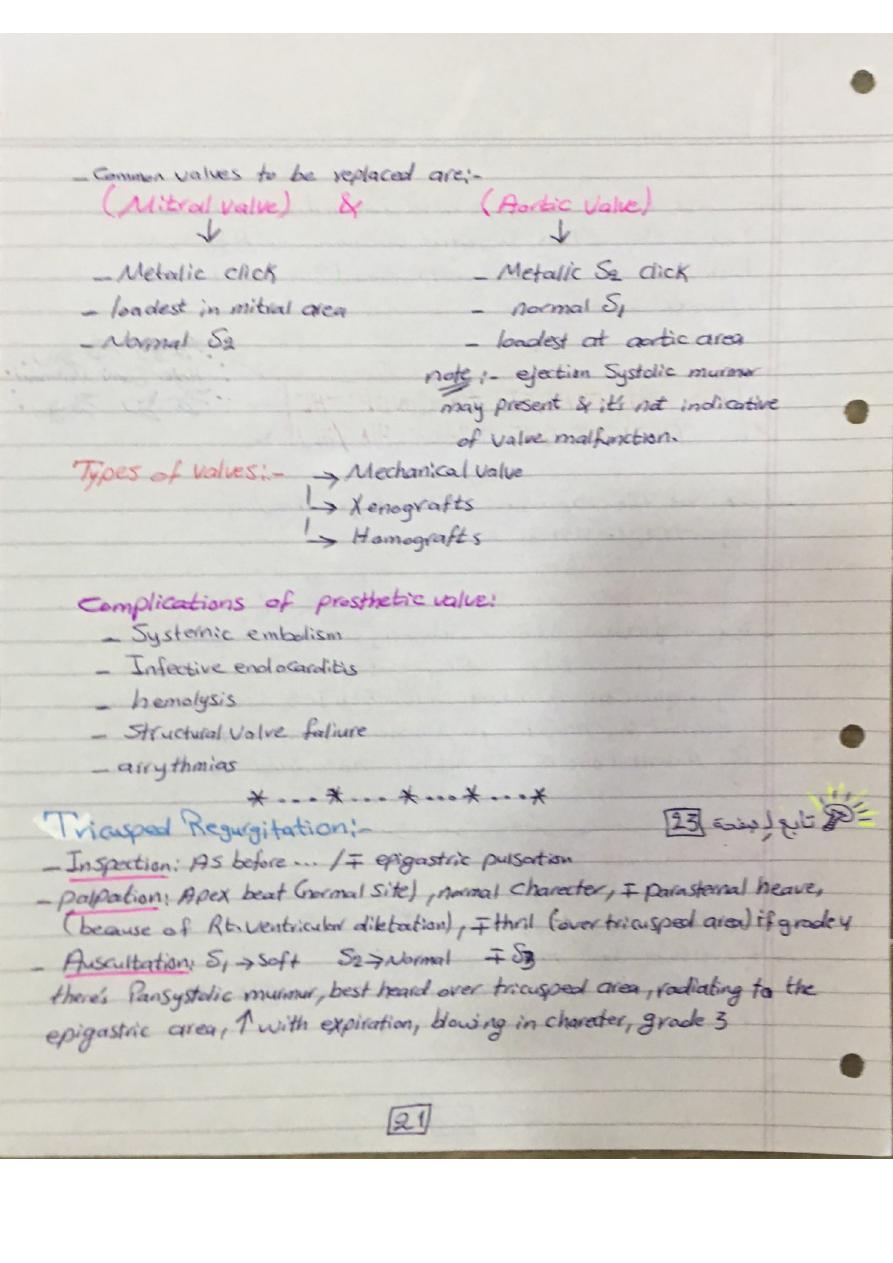 - Common values to be replaced are:-
(Mitral valve) & (Aortic valve)
↓ ↓
- Metalic click - Metalic S2 click
- loadest in mitral area - normal S1
- Normal S2 - loadest at aortic area
note:- ejection Systolic murmur
may present & it's not indicative
of value malfunction.
Types of values:- → Mechanical value
↳ Xenografts
↳ Homografts
Complications of prosthetic valve:
- Systemic embolism
- Infective endocarditis
- hemolysis
- Structural valve faliure
- arrythmias
*...*...*...*...*
Tricusped Regurgitation:- تابع لصفحة 23
- Inspection: As before... / ∓ epigastric pulsation
- palpation: Apex beat (normal site), normal character, ∓ parasternal heave,
(because of Rt. ventricular dilctation), ∓ thril (over tricusped area) if grade 4
- Auscultation: S1 → soft S2 → Normal ∓ S3
there's Pansystolic murmur, best heard over tricusped area, radiating to the
epigastric area, ↑ with expiration, blowing in charecter, grade 3
21